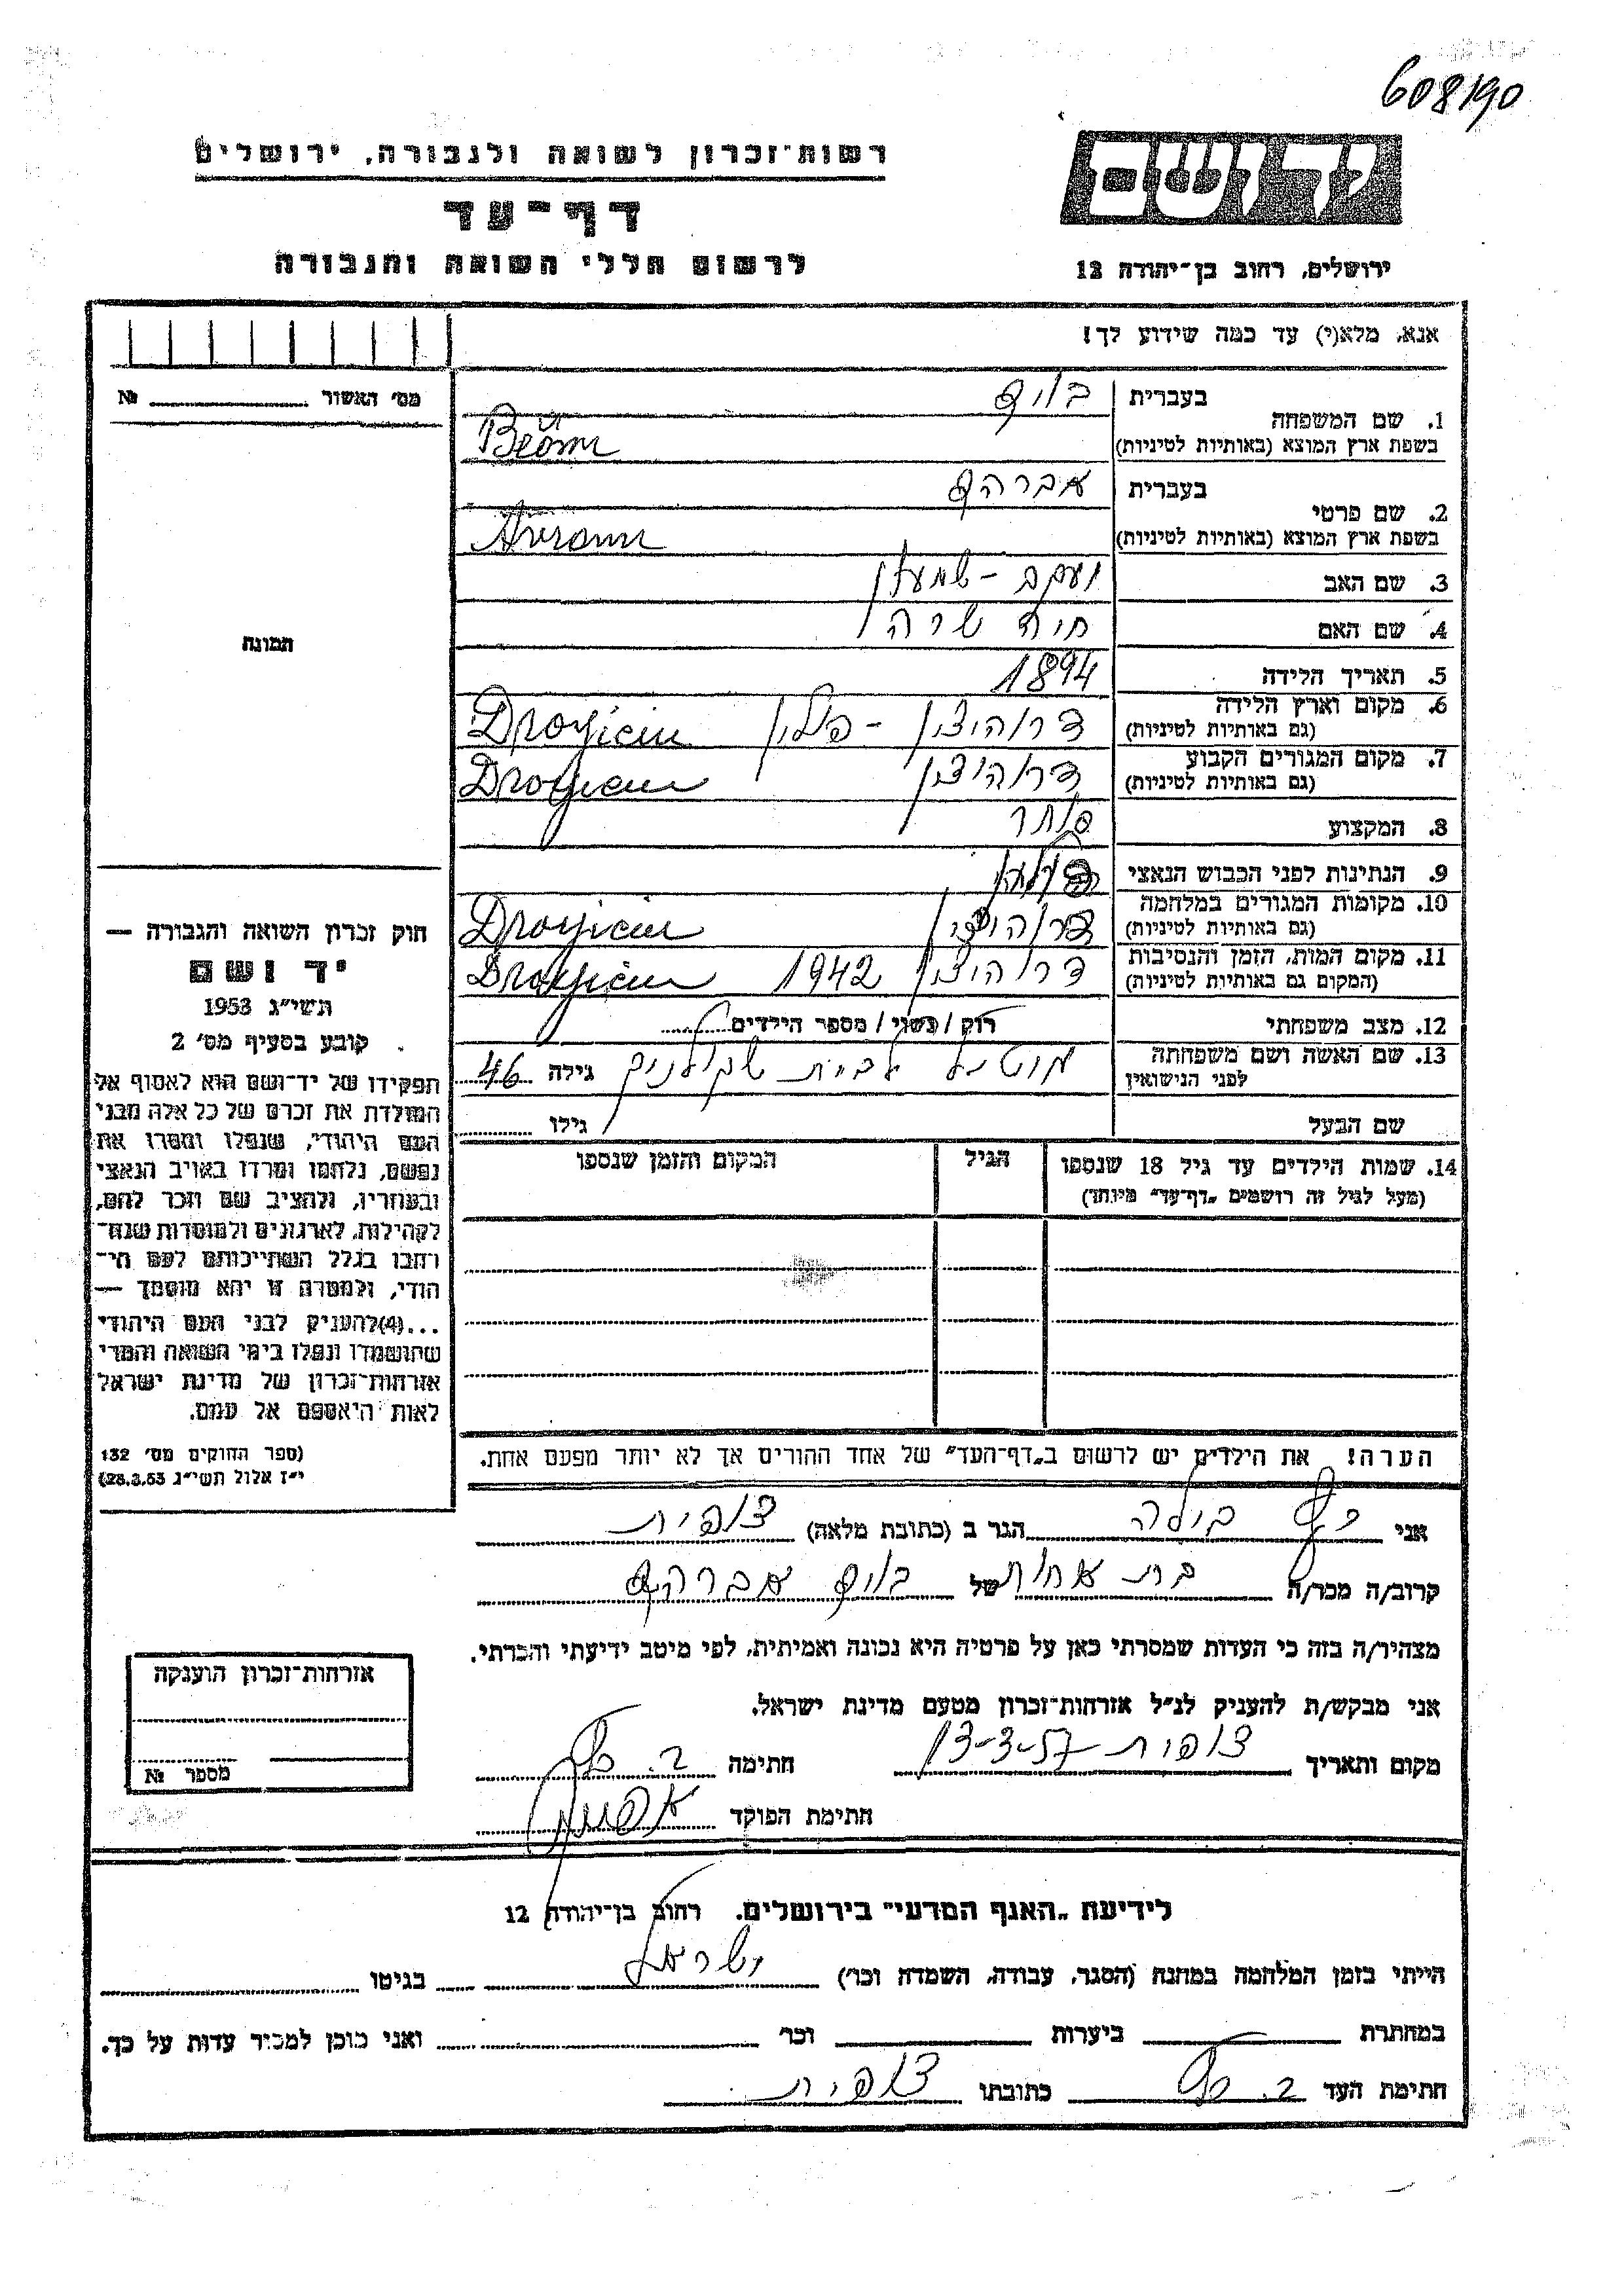 608190
רשות־זכרון לשואה ולגבורה, ירושלים
דף־עד
לרשום חללי השואה והגבורה
יד ושם
ירושלים, רחוב בן־יהודה 12
אנא, מלא(י) עד כמה שידוע לך!
מס׳ האשור № 
1. שם המשפחה
בעברית
בשפת ארץ המוצא (באותיות לטיניות)
2. שם פרטי
בעברית אברהם
בשפת ארץ המוצא (באותיות לטיניות) Avraam
3. שם האב יעקב - שמעון
4. שם האם חיה שרה
5. תאריך הלידה 1894
6. מקום וארץ הלידה דרוהיצין - פולין Drogicin
(גם באותיות לטיניות)
7. מקום המגורים הקבוע דרוהיצין Drogicin
(גם באותיות לטיניות)
8. המקצוע סוחר
9. הנתינות לפני הכבוש הנאצי
10. מקומות המגורים במלחמה דרוהיצין Drogicin
(גם באותיות לטיניות)
11. מקום המות, הזמן והנסיבות דרוהיצין 1942 Drogicin
(המקום גם באותיות לטיניות)
12. מצב משפחתי רוק / נשוי / מספר הילדים
13. שם האשה ושם משפחתה לבית גילה 46
לפני הנישואין
שם הבעל גילו
14. שמות הילדים עד גיל 18 שנספו
(מעל לגיל זה רושמים „דף־עד" מיוחד)
הגיל
המקום והזמן שנספו
תמונה
חוק זכרון השואה והגבורה —
יד ושם
תשי״ג 1953
קובע בסעיף מס׳ 2
תפקידו של יד־ושם הוא לאסוף אל
המולדת את זכרם של כל אלה מבני
העם היהודי, שנפלו ומסרו את
נפשם, נלחמו ומרדו באויב הנאצי
ובעוזריו, ולהציב שם וזכר להם,
לקהילות, לארגונים ולמוסדות שנח־
רבו בגלל השתייכותם לעם הי־
הודי, ולמטרה זו יהא מוסמך —
...(4)להעניק לבני העם היהודי
שהושמדו ונפלו בימי השואה והמרי
אזרחות־זכרון של מדינת ישראל
לאות היאספם אל עמם.
(ספר החוקים מס׳ 132
י״ז אלול תשי״ג 28.8.53)
הערה! את הילדים יש לרשום ב„דף־העד" של אחד ההורים אך לא יותר מפעם אחת.
אני כץ בילה הגר ב (כתובת מלאה) צופית
קרוב/ה מכר/ה בת אחות של אברהם
מצהיר/ה בזה כי העדות שמסרתי כאן על פרטיה היא נכונה ואמיתית, לפי מיטב ידיעתי והכרתי.
אני מבקש/ת להעניק לנ״ל אזרחות־זכרון מטעם מדינת ישראל.
מקום ותאריך צופית 13-3-57 חתימה ב. כץ
חתימת הפוקד
אזרחות־זכרון הוענקה
מספר №
לידיעת „האגף המדעי" בירושלים. רחוב בן־יהודה 12
הייתי בזמן המלחמה במחנה (הסגר, עבודה, השמדה וכו׳) ישראל בגיטו
במחתרת ביערות וכו׳ ואני מוכן למסור עדות על כך.
חתימת העד ב. כץ כתובתו צופית